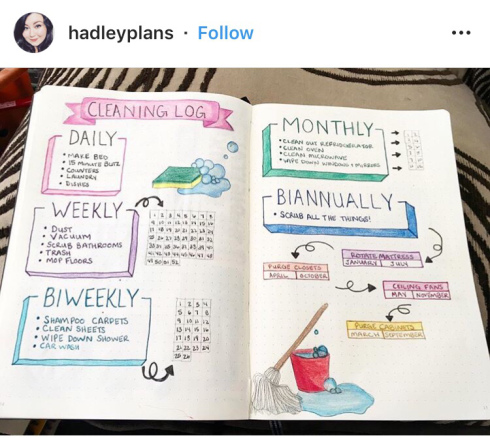 hadleyplans · Follow
CLEANING LOG
DAILY
• MAKE BED
• 15 MINUTE BLITZ
• COUNTERS
• LAUNDRY
• DISHES
WEEKLY
• DUST
• VACUUM
• SCRUB BATHROOMS
• TRASH
• MOP FLOORS
1 2 3 4 5 6 7 8
9 10 11 12 13 14 15 16
17 18 19 20 21 22 23 24
25 26 27 28 29 30 31 32
33 34 35 36 37 38 39 40
41 42 43 44 45 46 47 48
49 50 51 52
BIWEEKLY
• SHAMPOO CARPETS
• CLEAN SHEETS
• WIPE DOWN SHOWER
• CAR WASH
1 2 3 4
5 6 7 8
9 10 11 12
13 14 15 16
17 18 19 20
21 22 23 24
25 26
MONTHLY
• CLEAN OUT REFRIDGERATOR
• CLEAN OVEN
• CLEAN MICROWAVE
• WIPE DOWN WINDOWS + MIRRORS
BIANNUALLY
• SCRUB ALL THE THINGS!
ROTATE MATTRESS
JANUARY JULY
PURGE CLOSETS
APRIL OCTOBER
CEILING FANS
MAY NOVEMBER
PURGE CABINETS
MARCH SEPTEMBER